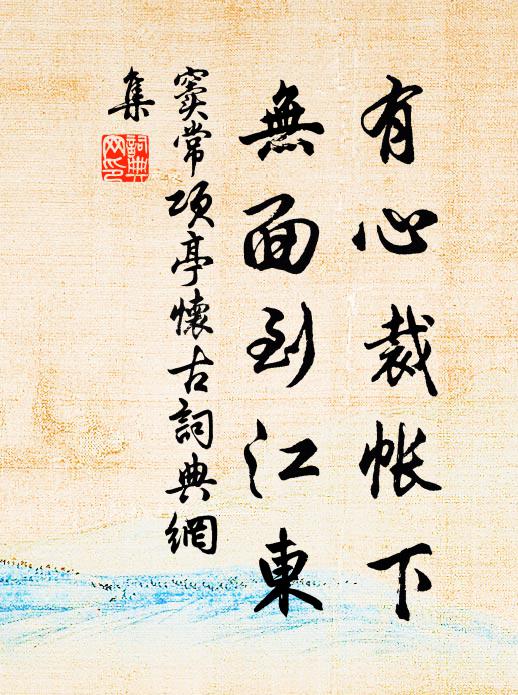 有心裁帐下
無面到江東
窦常項亭懷古詞典網
集
詞典網印